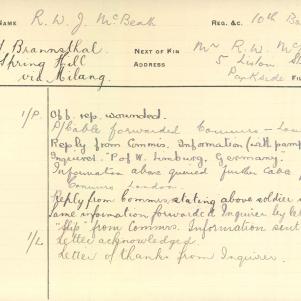 NAME R. W. J. McBeath REG. &C. 10th Ba
J Brannethal
Spring Hill
via Milang.
NEXT OF KIN Mr R. W. Mc
ADDRESS 5 Liston St
Parkside
1/P Off. rep. wounded.
P/Cable forwarded Commrs - Lon
Reply from Commrs. Information (with pamp
Inquirer. "P of W. Limburg, Germany."
Information above queried further Cable
Commrs London.
Reply from Commrs, stating above soldier
Same information forwarded Inquirer by let
"slip" from Commrs. Information sent
1/L Letter acknowledged.
Letter of thanks from Inquirer.